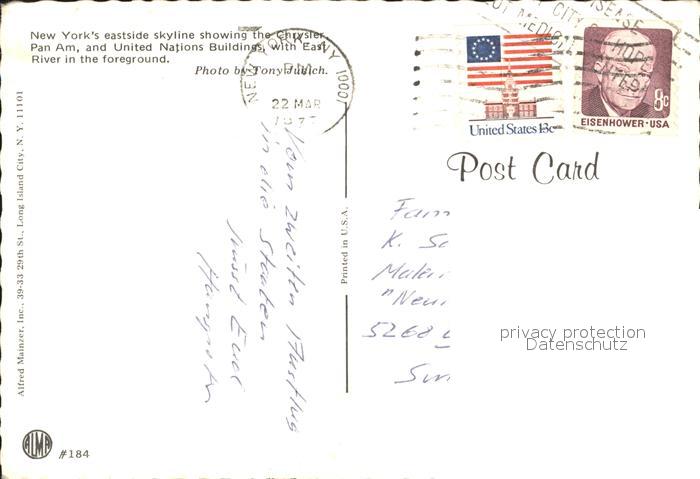 New York's eastside skyline showing the Chrysler,
Pan Am, and United Nations Buildings, with East
River in the foreground.
Photo by Tony Judich.
NEW YORK, NY 10001
PM
22 MAR
1977
United States 13c
8c
EISENHOWER·USA
Post Card
Alfred Mainzer, Inc., 39-33 29th St., Long Island City, N. Y. 11101
Printed in U.S.A.
Vom zweiten Ausflug
in die Staaten
Grüsst Euch
Fam
K. Sc
5268
privacy protection
Datenschutz
ALMA
#184